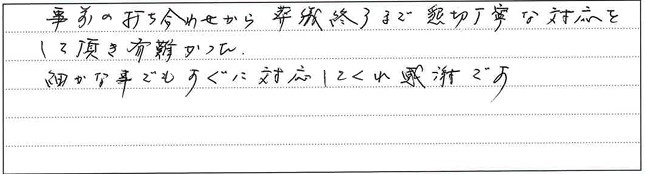 事前の打ち合わせから 葬儀終了まで 懇切丁寧な対応を
して頂き有難かった.
細かな事でもすぐに対応してくれ感謝です